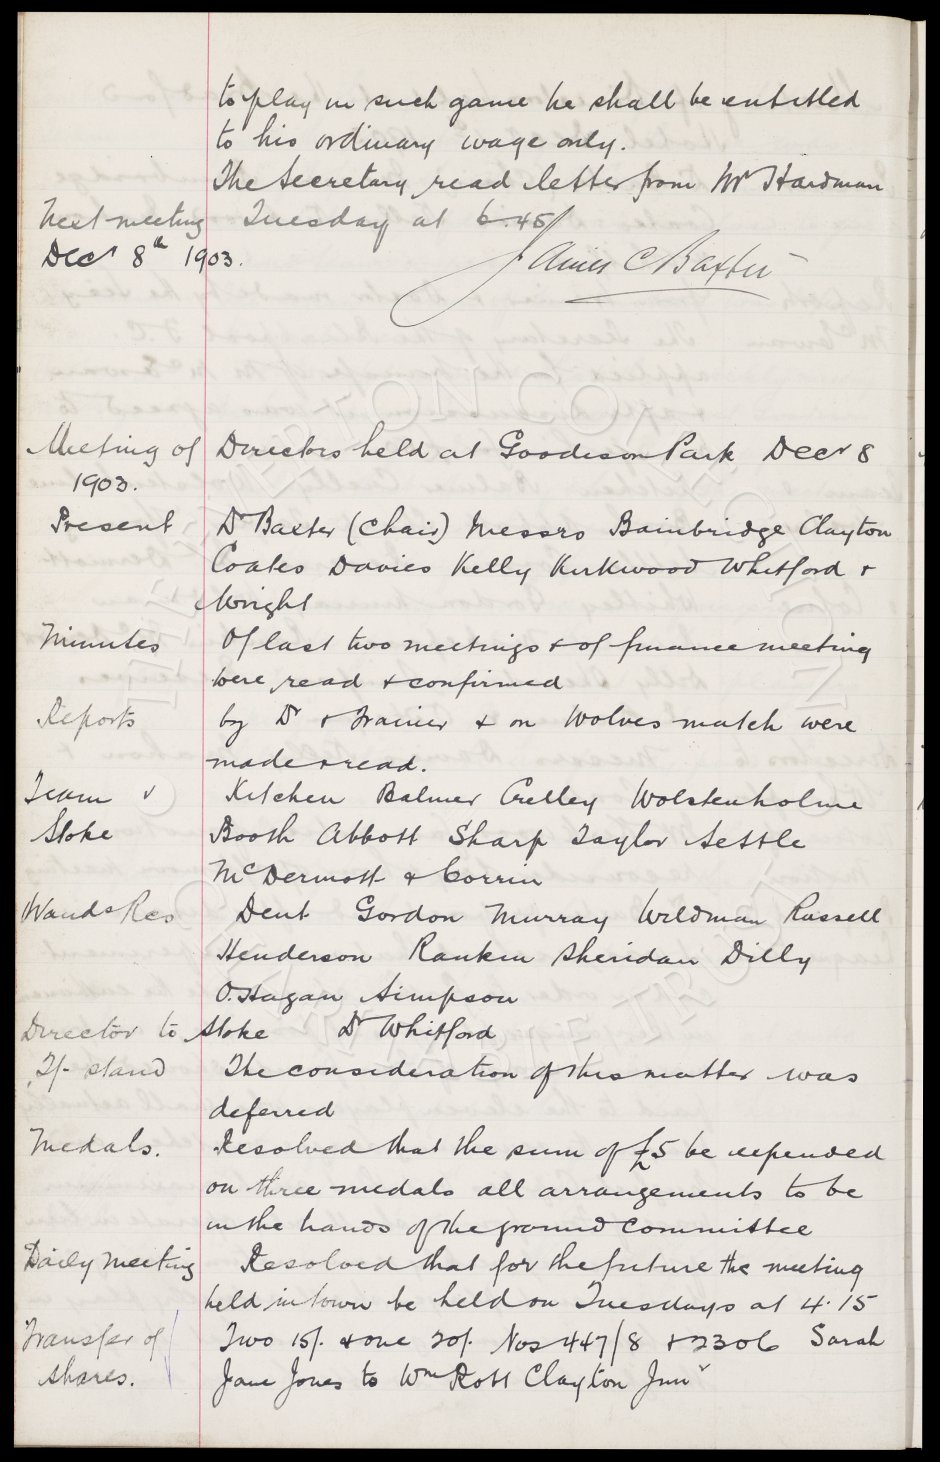 to play in such game he shall be entitled
to his ordinary wage only.
The Secretary read letter from Mr Hardman
Next meeting Tuesday at 6.45
Decr 8th 1903. James C Baxter
Meeting of Directors held at Goodison Park Decr 8
1903.
Present Dr Baxter (Chair) Messrs Bainbridge Clayton
Coates Davies Kelly Kirkwood Whitford &
Wright
Minutes Of last two meetings & of finance meeting
were read & confirmed
Reports by Dr & Trainer & on Wolves match were
made & read.
Team v Kitchen Balmer Crelley Wolstenholme
Stoke Booth Abbott Sharp Taylor Settle
McDermott & Corrin
Wands Res Dent Gordon Murray Wildman Russell
Henderson Rankin Sheridan Dilly
O.Hagan Simpson
Director to Stoke Dr Whitford
2/- stand The consideration of this matter was
deferred
Medals. Resolved that the sum of £5 be expended
on three medals all arrangements to be
in the hands of the ground committee
Daily meeting Resolved that for the future the meeting
held in town be held on Tuesdays at 4.15
Transfer of Two 15/. & one 20/. Nos 447/8 & 2306 Sarah
shares. Jane Jones to Wm Robt Clayton Junr
EVERTON COLLECTION
EVERTON COLLECTION